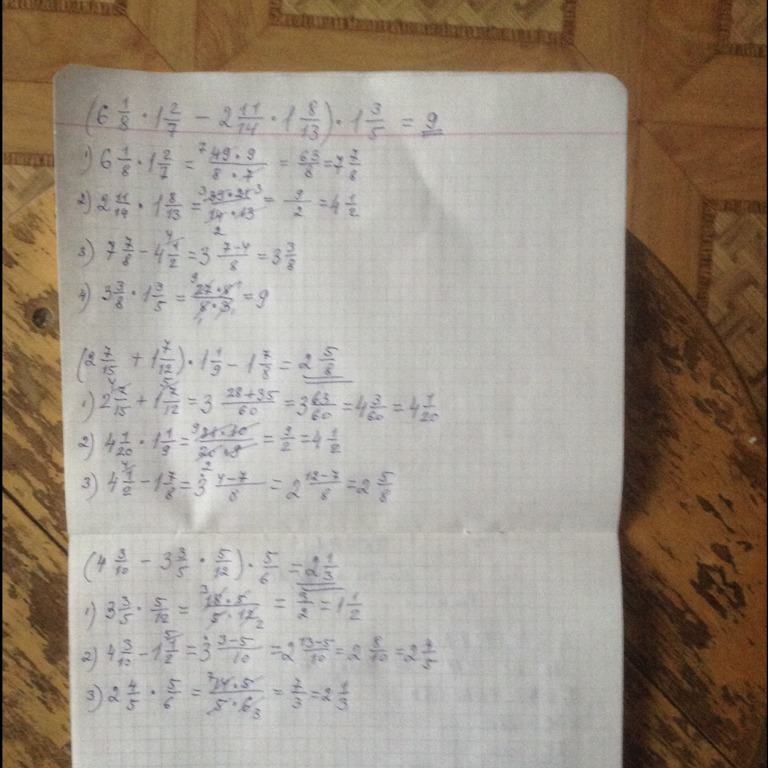 (6 1/8 · 1 2/7 − 2 11/14 · 1 8/13) · 1 3/5 = 9
1) 6 1/8 · 1 2/7 = 49·9/8·7 = 63/8 = 7 7/8
2) 2 11/14 · 1 8/13 = 39·21/14·13 = 9/2 = 4 1/2
3) 7 7/8 − 4 1/2 = 3 7−4/8 = 3 3/8
4) 3 3/8 · 1 3/5 = 27·8/8·3 = 9
(2 7/15 + 1 7/12) · 1 1/9 − 1 7/8 = 2 5/8
1) 2 7/15 + 1 7/12 = 3 28+35/60 = 3 63/60 = 4 3/60 = 4 1/20
2) 4 1/20 · 1 1/9 = 81·10/20·9 = 9/2 = 4 1/2
3) 4 1/2 − 1 7/8 = 3 4−7/8 = 2 12−7/8 = 2 5/8
(4 3/10 − 3 3/5 · 5/12) · 5/6 = 2 1/3
1) 3 3/5 · 5/12 = 18·5/5·12 = 3/2 = 1 1/2
2) 4 3/10 − 1 1/2 = 3 3−5/10 = 2 13−5/10 = 2 8/10 = 2 4/5
3) 2 4/5 · 5/6 = 14·5/5·6 = 7/3 = 2 1/3